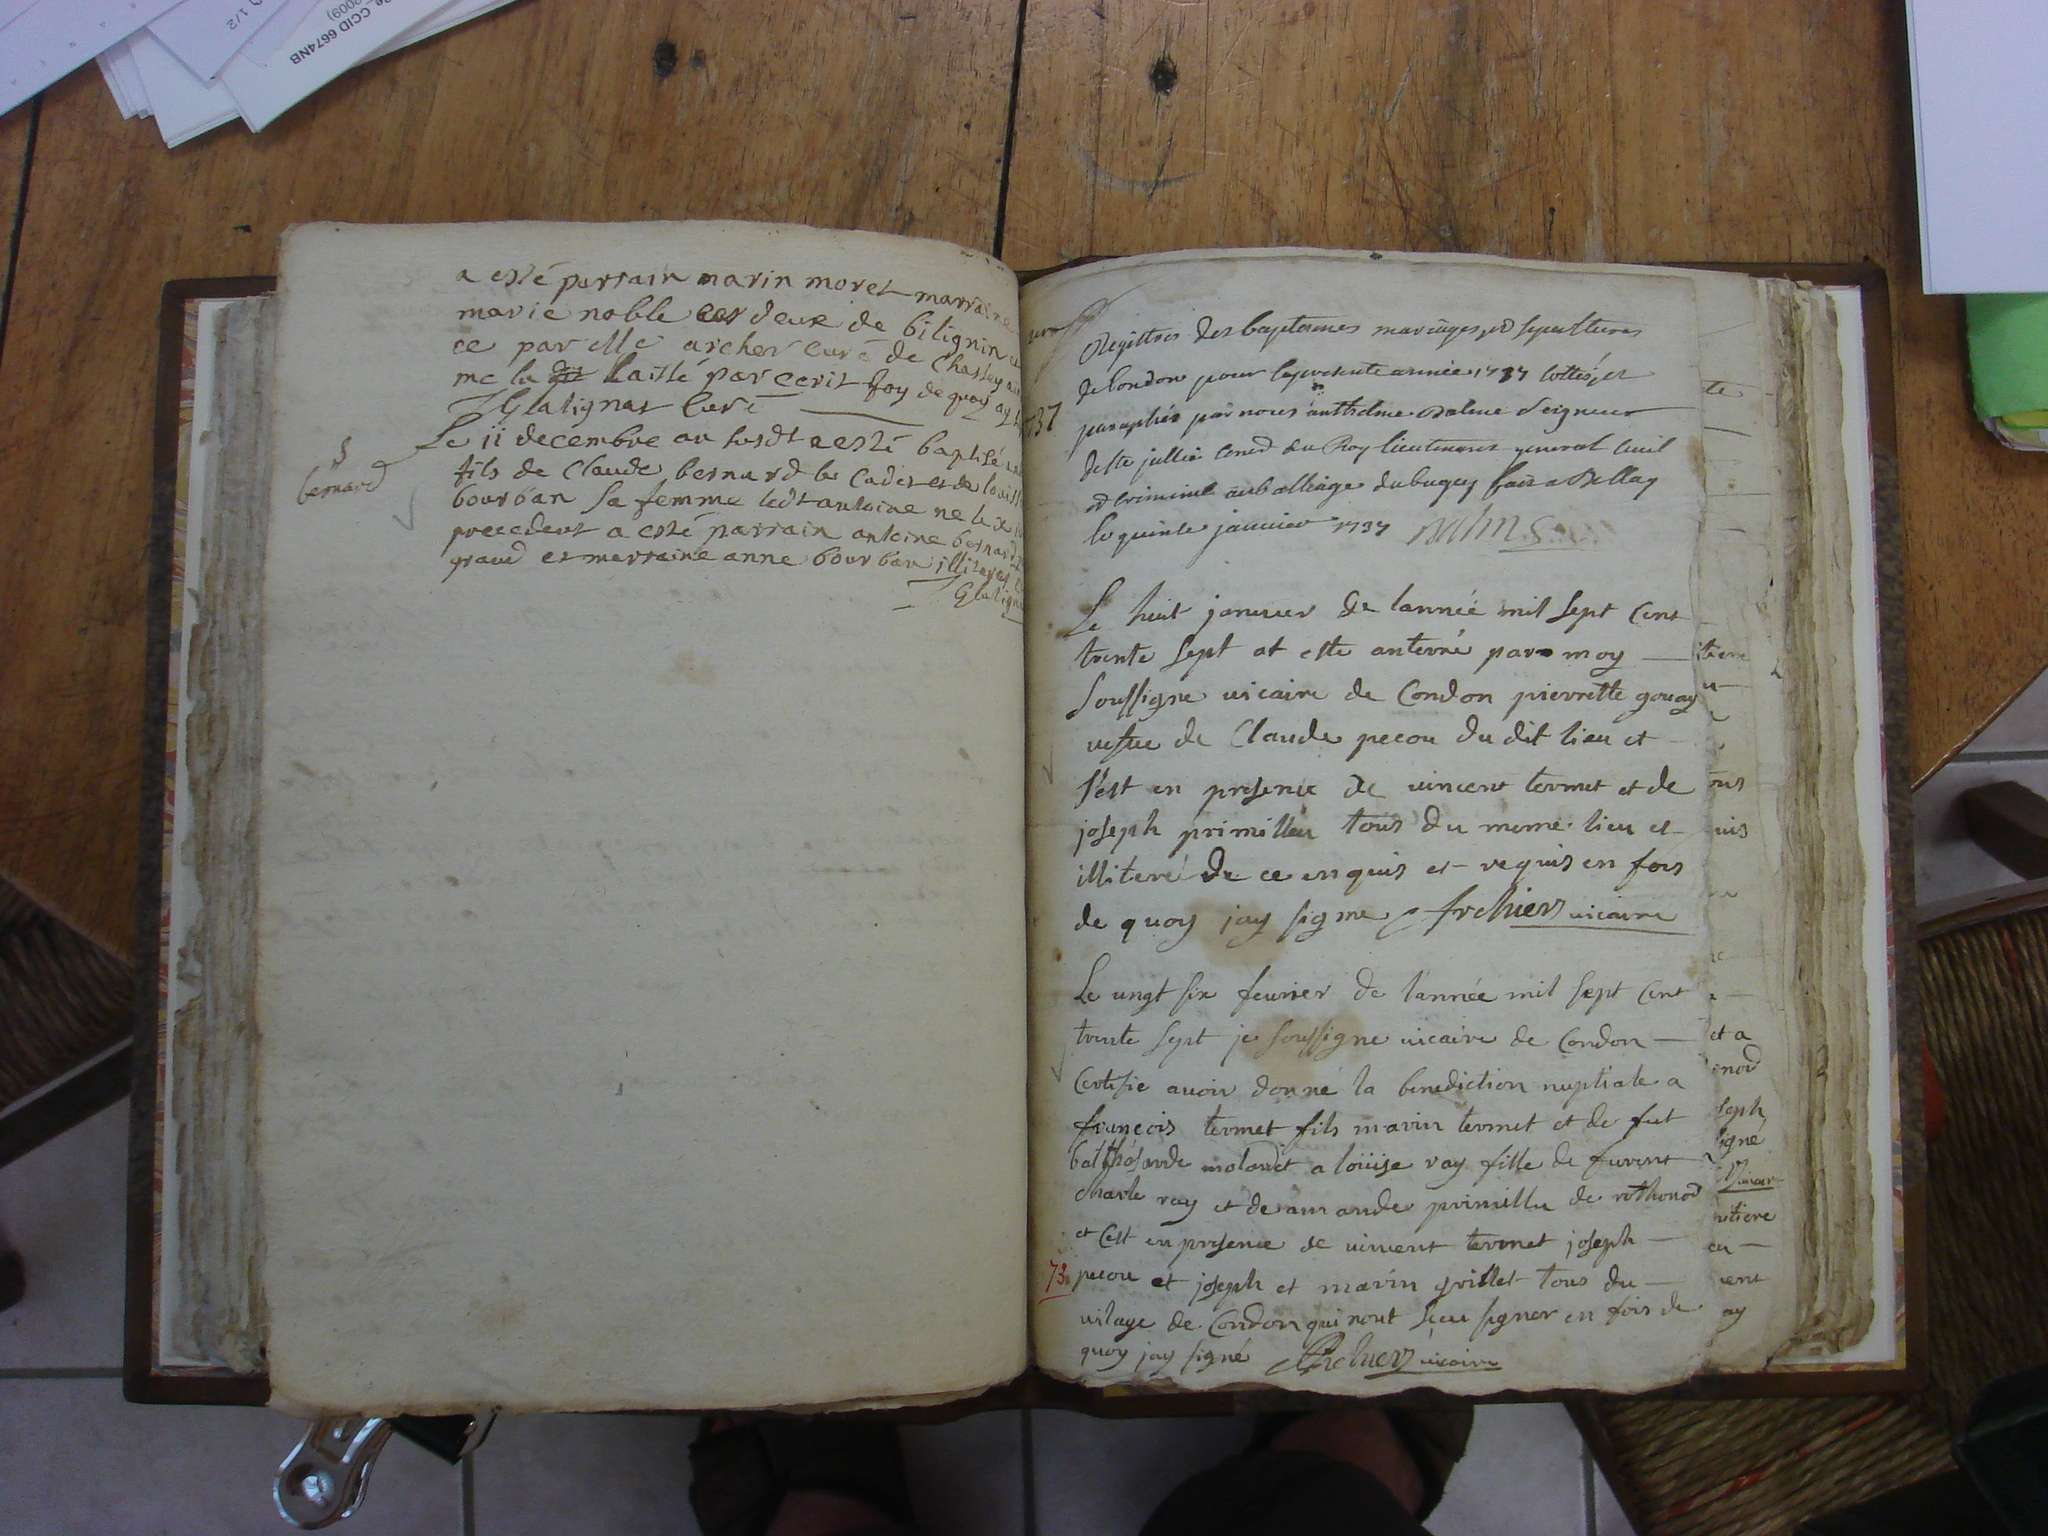 CCID 6674NB
2009)
1/2
a esté parrain marin moret marraine
marie noble les deux de bilignin
ce par elle archer curé de Chasley
me la laissé par ecrit foy de quoy ay
Glatignat Curé
bernard
Le 11 decembre au susdt a esté baptisé
fils de Claude bernard le Cadet et de louise
bourban sa femme ledt antoine ne le x
precedent a esté parrain antoine bernard
grand et marraine anne bourban illiteres
Glatignat
1737
Registres des baptemes mariages et sepultures
de Condon pour la presente année 1737 cottés et
paraphés par nous anthelme Balme Seigneur
de Ste jullie Conser du Roy lieutenant general Civil
et criminel au balliage du bugey fait a Bellay
le quinze janvier 1737
Le huit janvier de lannée mil sept Cent
trente sept at este anterré par moy
soussigne vicaire de Condon pierrette gouay
vefue de Claude pecou du dit lieu et
sest en presence de vincent termet et de
joseph primilleu tous du meme lieu et
illiteré de ce enquis et requis en fois
de quoy jay signe Archier vicaire
Le vingt six fevrier de lannée mil sept Cent
trente sept je soussigne vicaire de Condon
Certifie avoir donné la benediction nuptiale a
françois termet fils marin termet et de fut
balthésarde molandt a loüise ray fille de furent
charle ray et de amande primilleu de rothonod
et Cest en presence de vincent termet joseph
73 pecou et joseph et marin grillet tous du
vilage de Condon qui nont sceu signer en fois de
quoy jay signé Archier vicaire
te
ous
uis
et a
enod
seph
signé
Vicair
eu
vent
ay